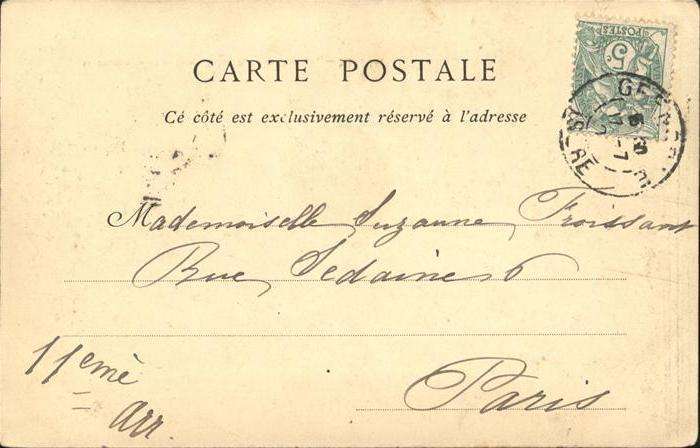 CARTE POSTALE
Cé côté est exclusivement réservé à l'adresse
POSTES
5
Mademoiselle Suzanne Froissant
Rue Sedaine 6
11eme
arr.
Paris